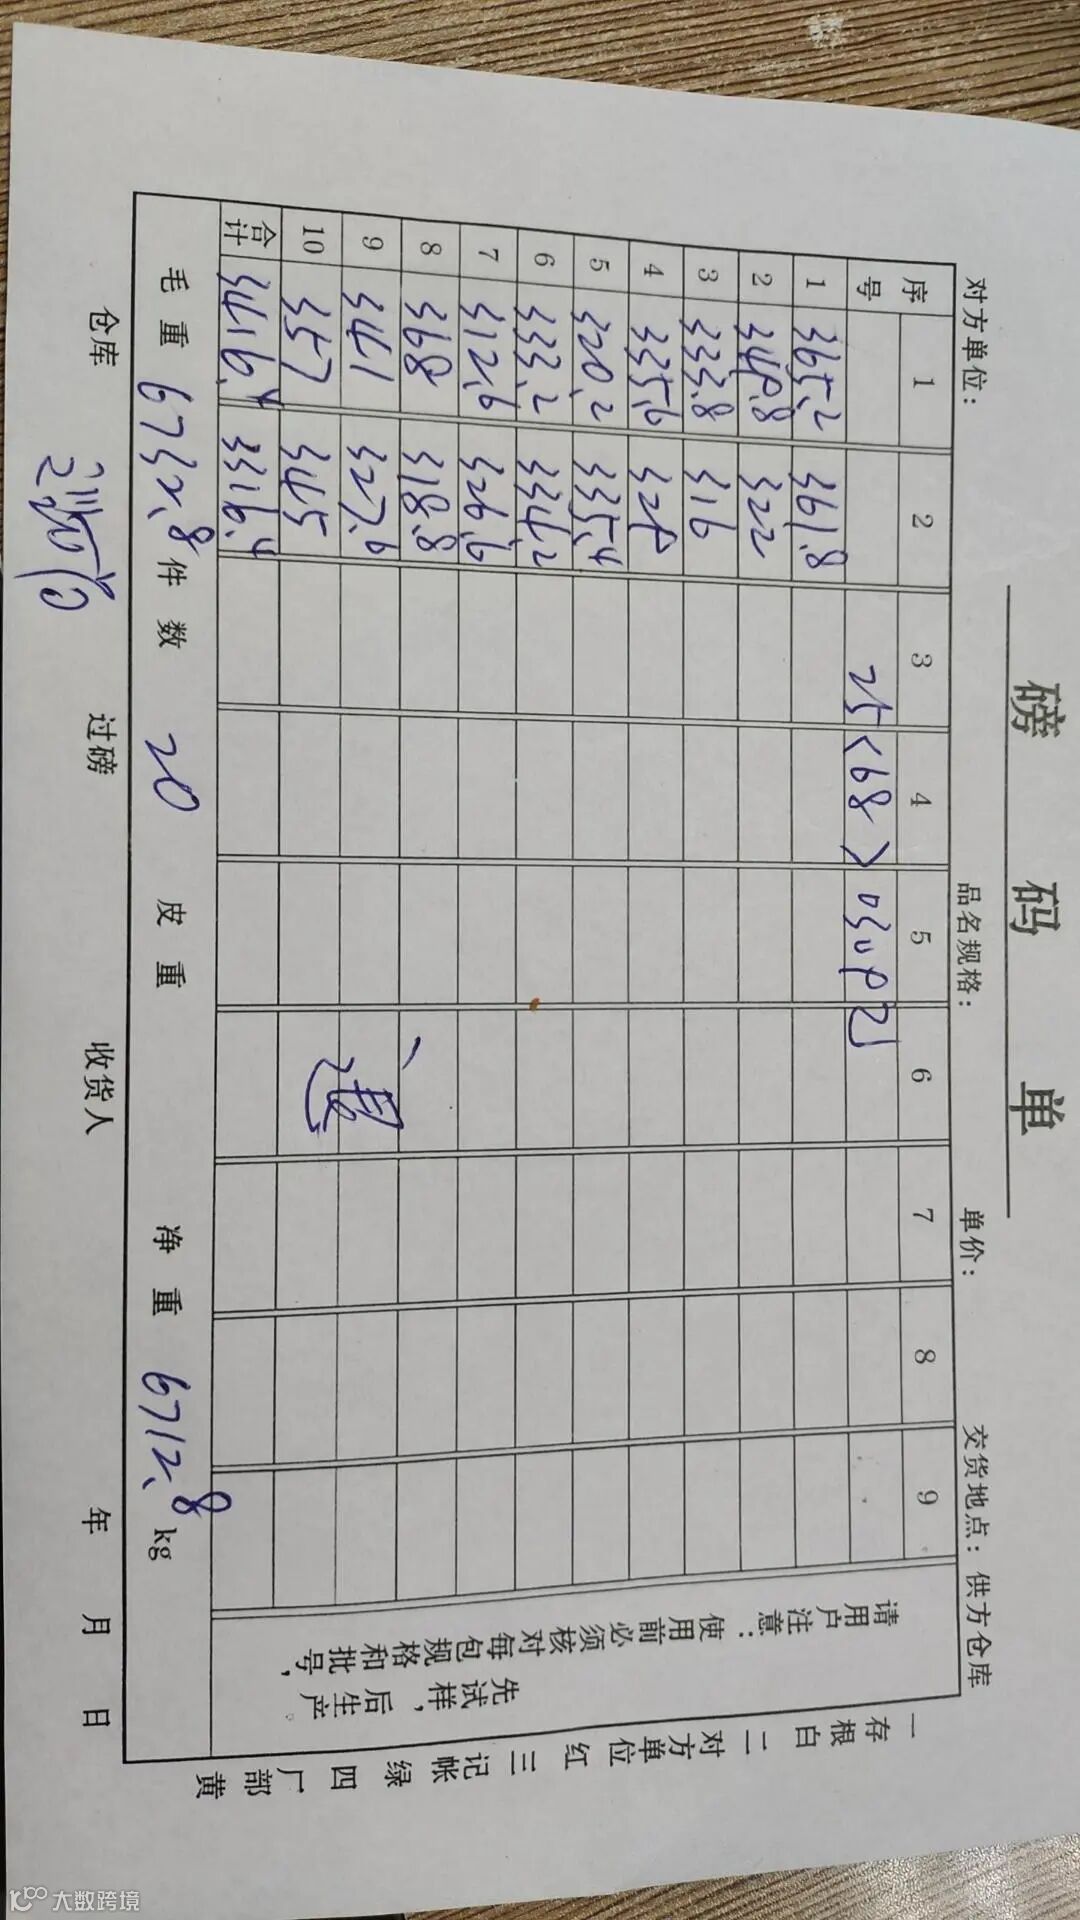 磅码单
对方单位: 品名规格: 单价: 交货地点: 供方仓库
序号 1 2 3 4 5 6 7 8 9
25<68>030921
1 365.2 361.8
2 349.8 322
3 333.8 316
4 335.6 329
5 320.2 335.4
6 333.2 334.2
7 312.6 326.6
8 368 318.8
9 341 327.6
10 357 345
合计 3416.4 3316.4
退
请用户注意:使用前必须核对每包规格和批号,
先试样,后生产
毛重 6732.8 件数 20 皮重 净重 6712.8 kg
仓库 过磅 收货人 年 月 日
一存根白 二对方单位红 三记帐绿 四厂部黄
大数跨境